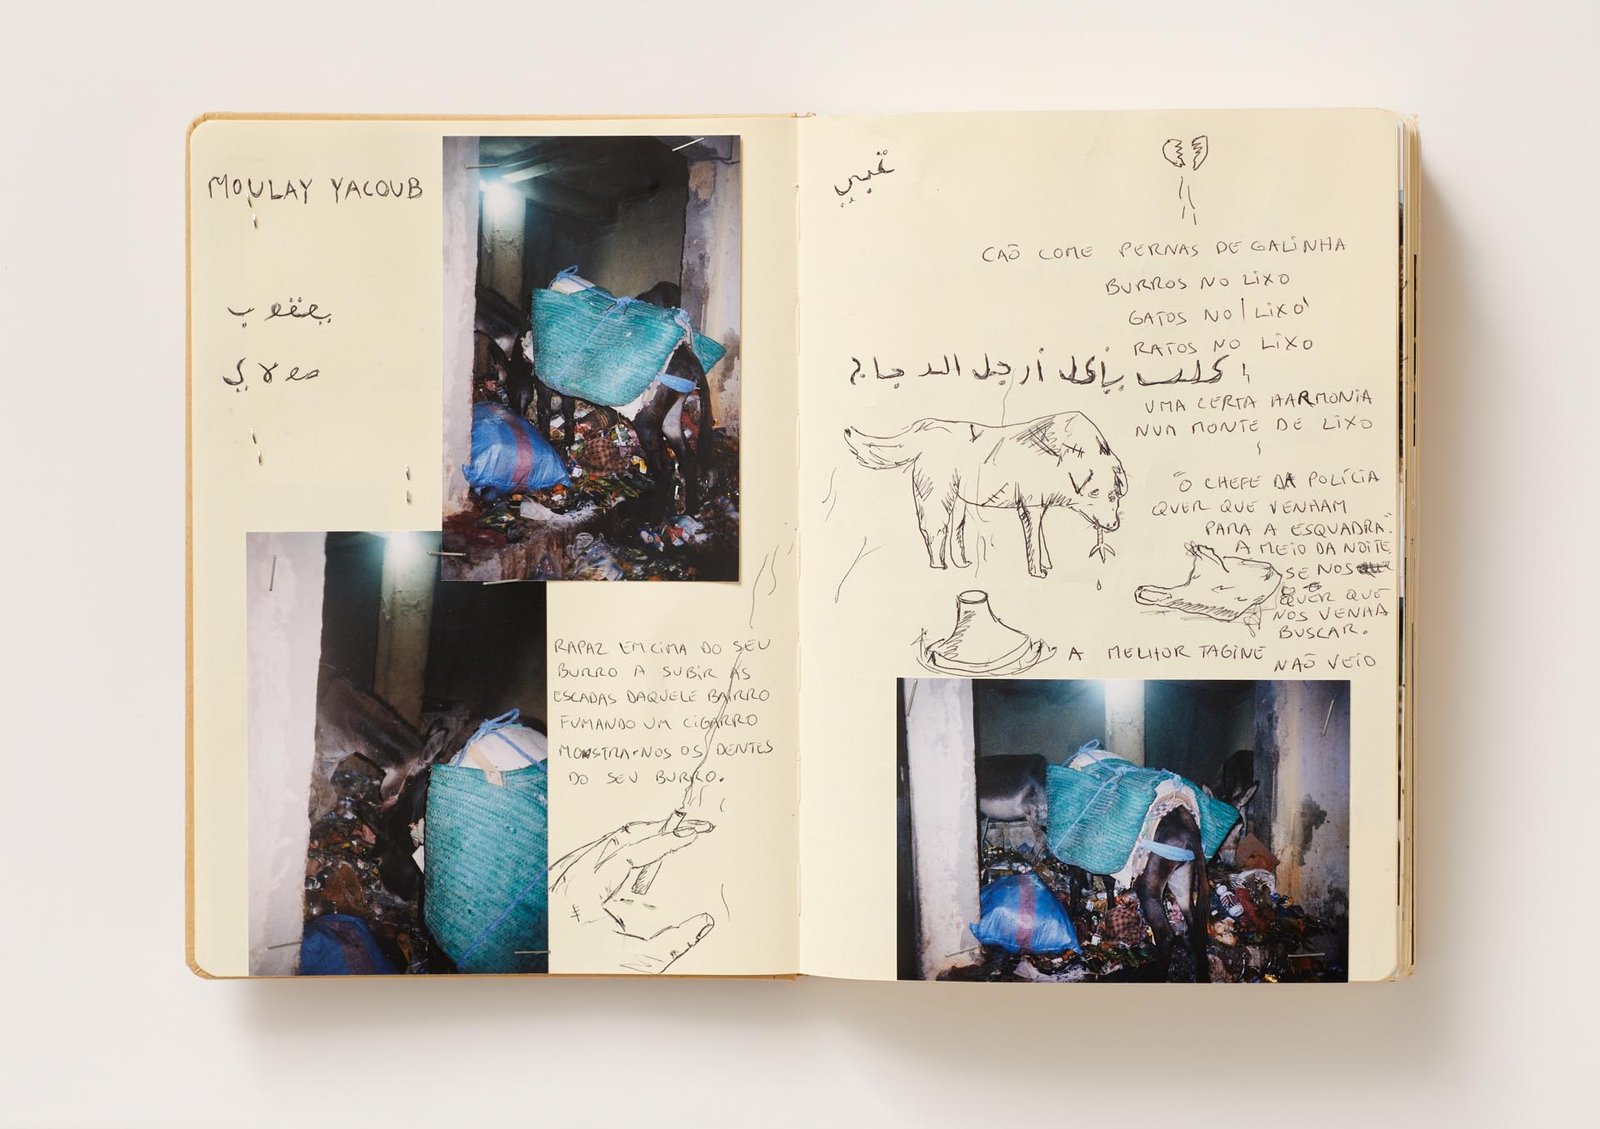 MOULAY YACOUB
يعقوب
مولاي
RAPAZ EM CIMA DO SEU
BURRO A SUBIR AS
ESCADAS DAQUELE BAIRRO
FUMANDO UM CIGARRO
MOSTRA-NOS OS DENTES
DO SEU BURRO.
غبي
CAÕ COME PERNAS DE GALINHA
BURROS NO LIXO
GATOS NO LIXO
RATOS NO LIXO
كلب يأكل أرجل الدجاج
UMA CERTA HARMONIA
NUM MONTE DE LIXO
"O CHEFE DA POLÍCIA
QUER QUE VENHAM
PARA A ESQUADRA".
A MEIO DA NOITE
SE NOS
QUER QUE
NOS VENHA
BUSCAR.
NAÕ VEIO
A MELHOR TAGINE